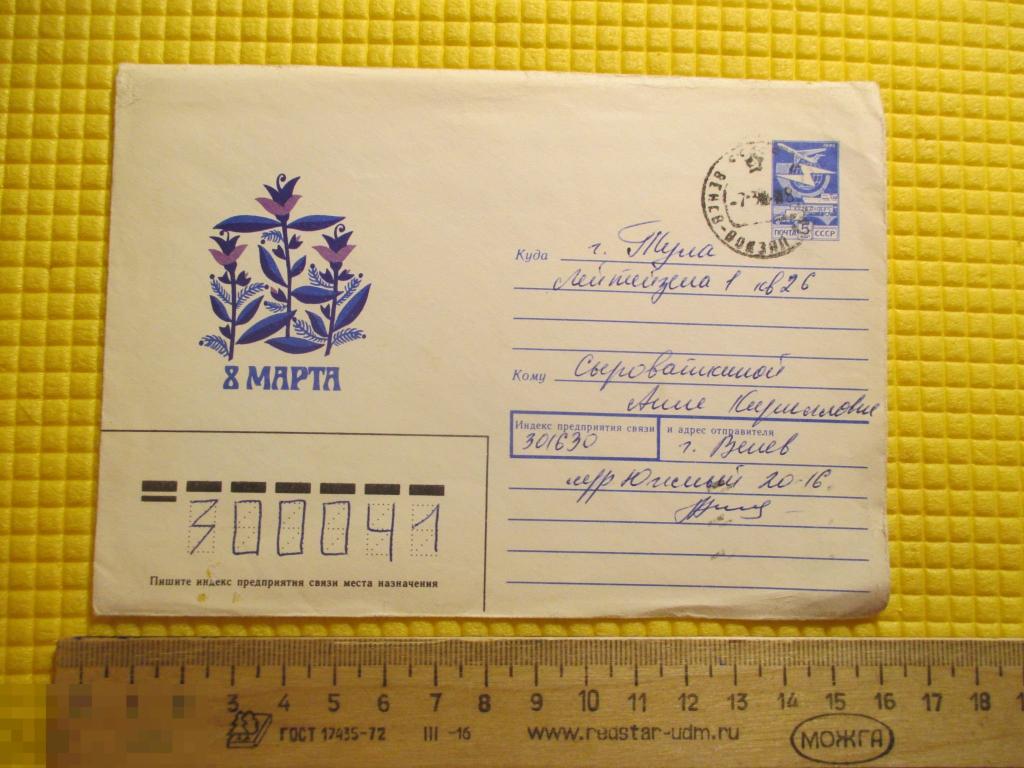 8 МАРТА
ПОЧТА 5 СССР
Куда г. Тула
Лейтейзена 1 кв 26
Кому Сыроваткиной
Анне Кирилловне
Индекс предприятия связи и адрес отправителя
301630 г. Венев
м/р Южный 20-16
300041
Пишите индекс предприятия связи места назначения
3 4 5 6 7 8 9 10 11 12 13 14 15 16 17 18
ГОСТ 17435-72 III -16 www.redstar-udm.ru МОЖГА